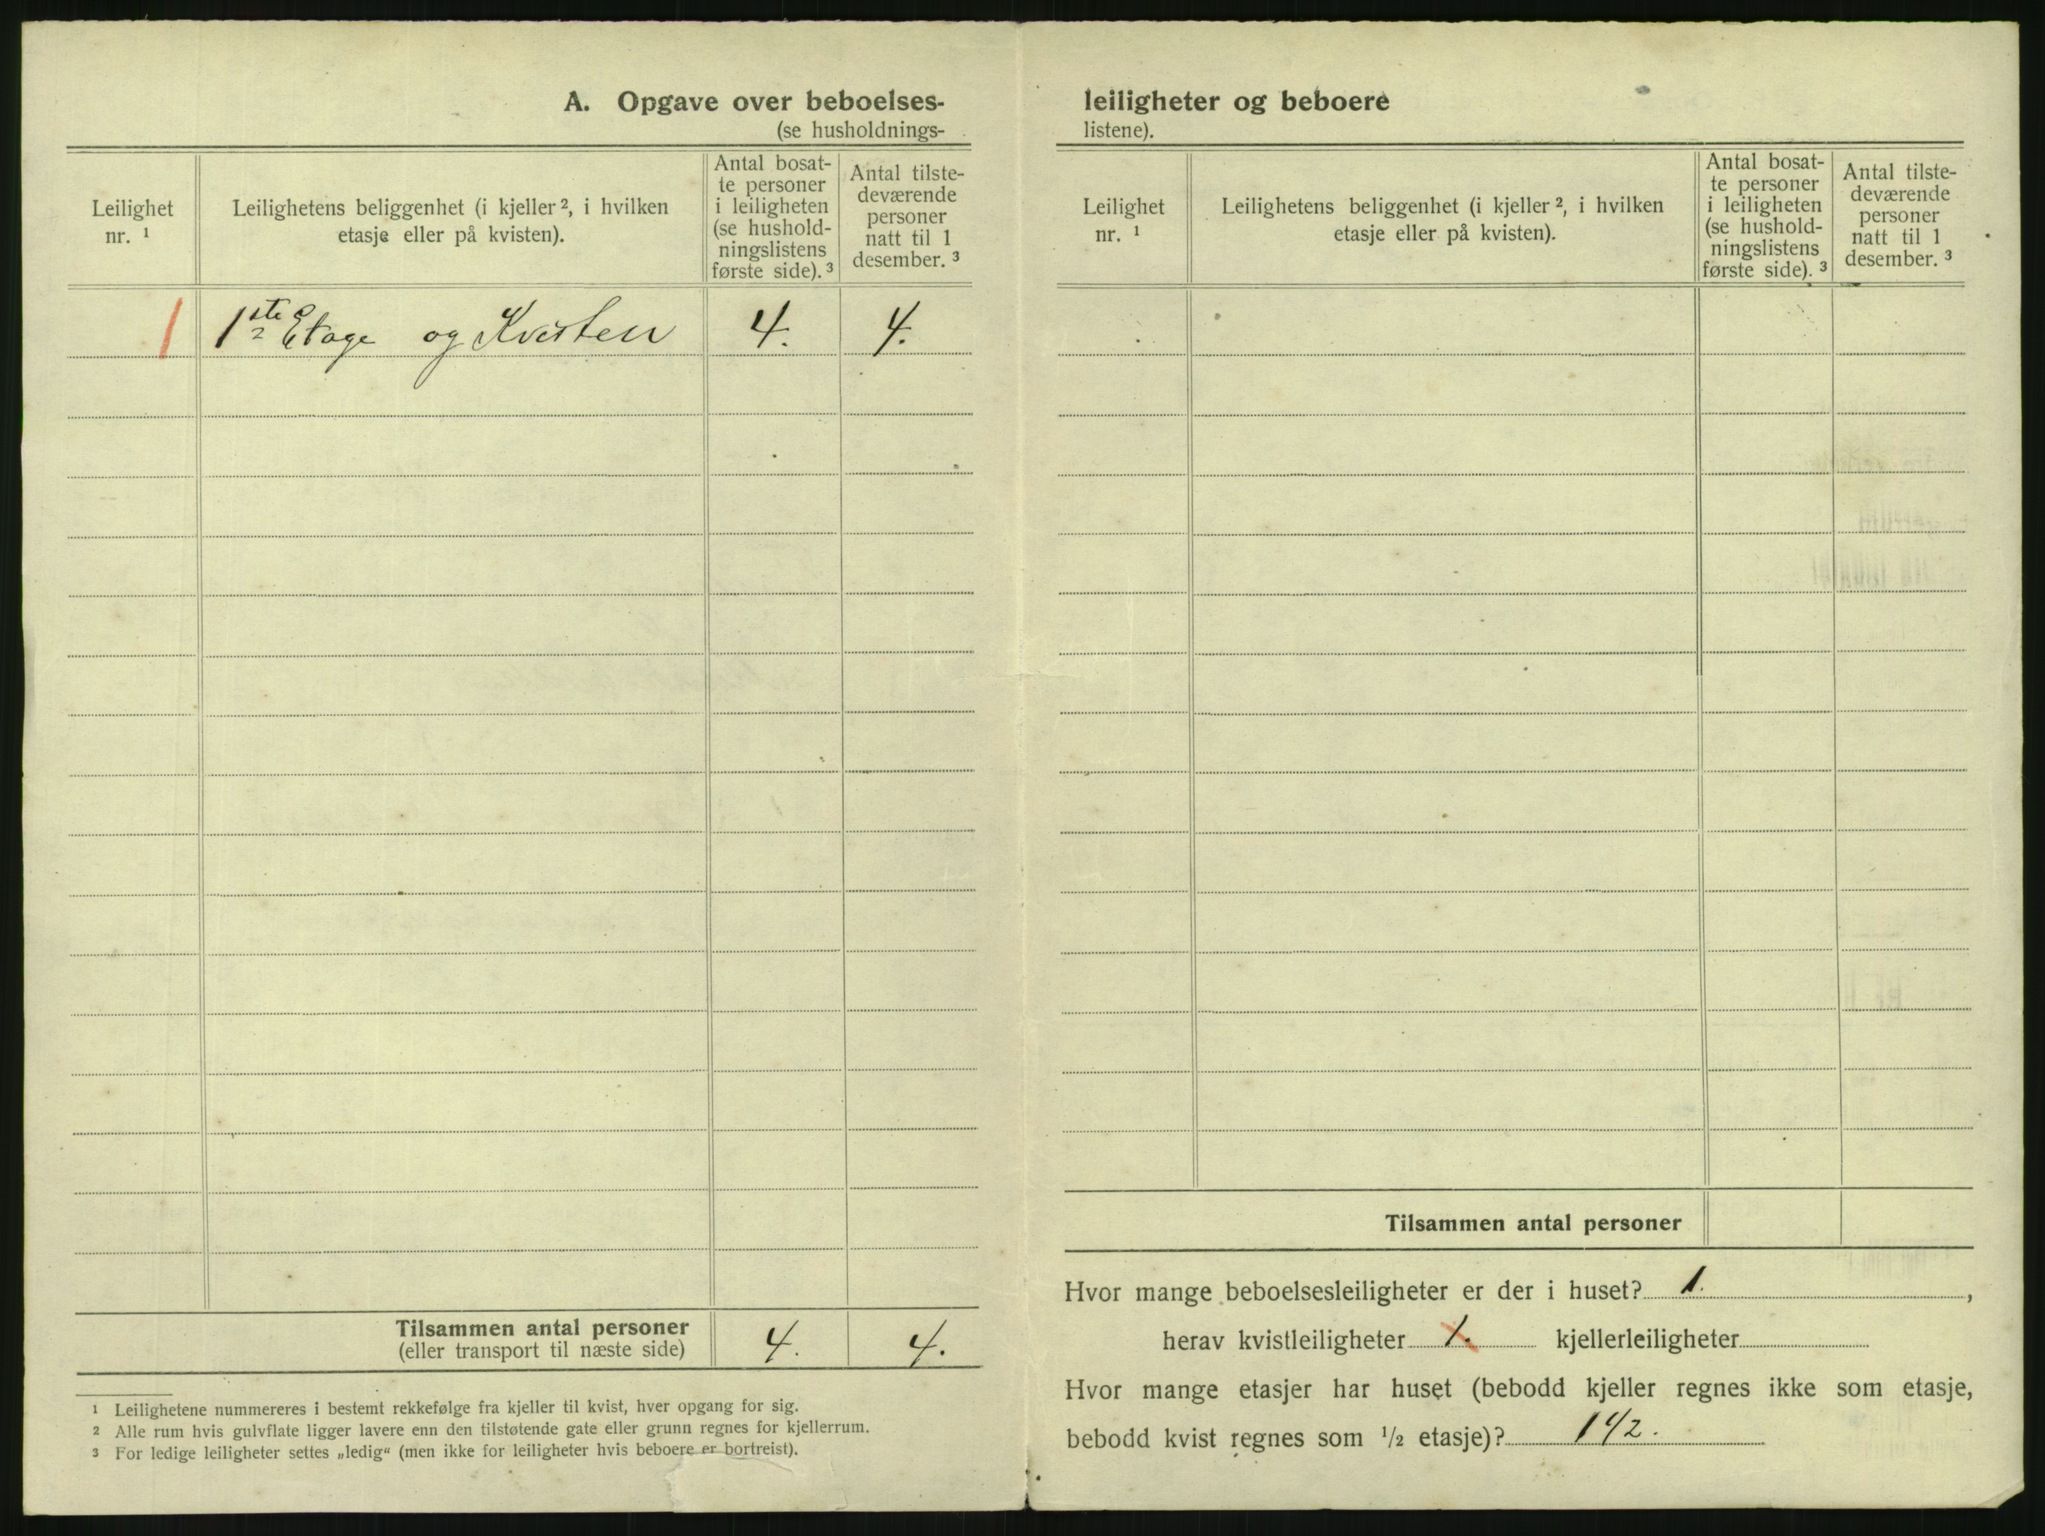 A. Opgave over beboelses-
(se husholdnings-
Leilighet
nr. ¹
Leilighetens beliggenhet (i kjeller ², i hvilken
etasje eller på kvisten).
Antal bosat-
te personer
i leiligheten
(se hushold-
ningslistens
første side). ³
Antal tilste-
deværende
personer
natt til 1
desember. ³
1 1ste Etage og Kvisten 4. 4.
Tilsammen antal personer 4. 4.
(eller transport til næste side)
¹ Leilighetene nummereres i bestemt rekkefølge fra kjeller til kvist, hver opgang for sig.
² Alle rum hvis gulvflate ligger lavere enn den tilstøtende gate eller grunn regnes for kjellerrum.
³ For ledige leiligheter settes „ledig“ (men ikke for leiligheter hvis beboere er bortreist).
leiligheter og beboere
listene).
Leilighet
nr. ¹
Leilighetens beliggenhet (i kjeller ², i hvilken
etasje eller på kvisten).
Antal bosat-
te personer
i leiligheten
(se hushold-
ningslistens
første side). ³
Antal tilste-
deværende
personer
natt til 1
desember. ³
Tilsammen antal personer
Hvor mange beboelsesleiligheter er der i huset? 1.,
herav kvistleiligheter 1. kjellerleiligheter
Hvor mange etasjer har huset (bebodd kjeller regnes ikke som etasje,
bebodd kvist regnes som ½ etasje)? 1 ½.